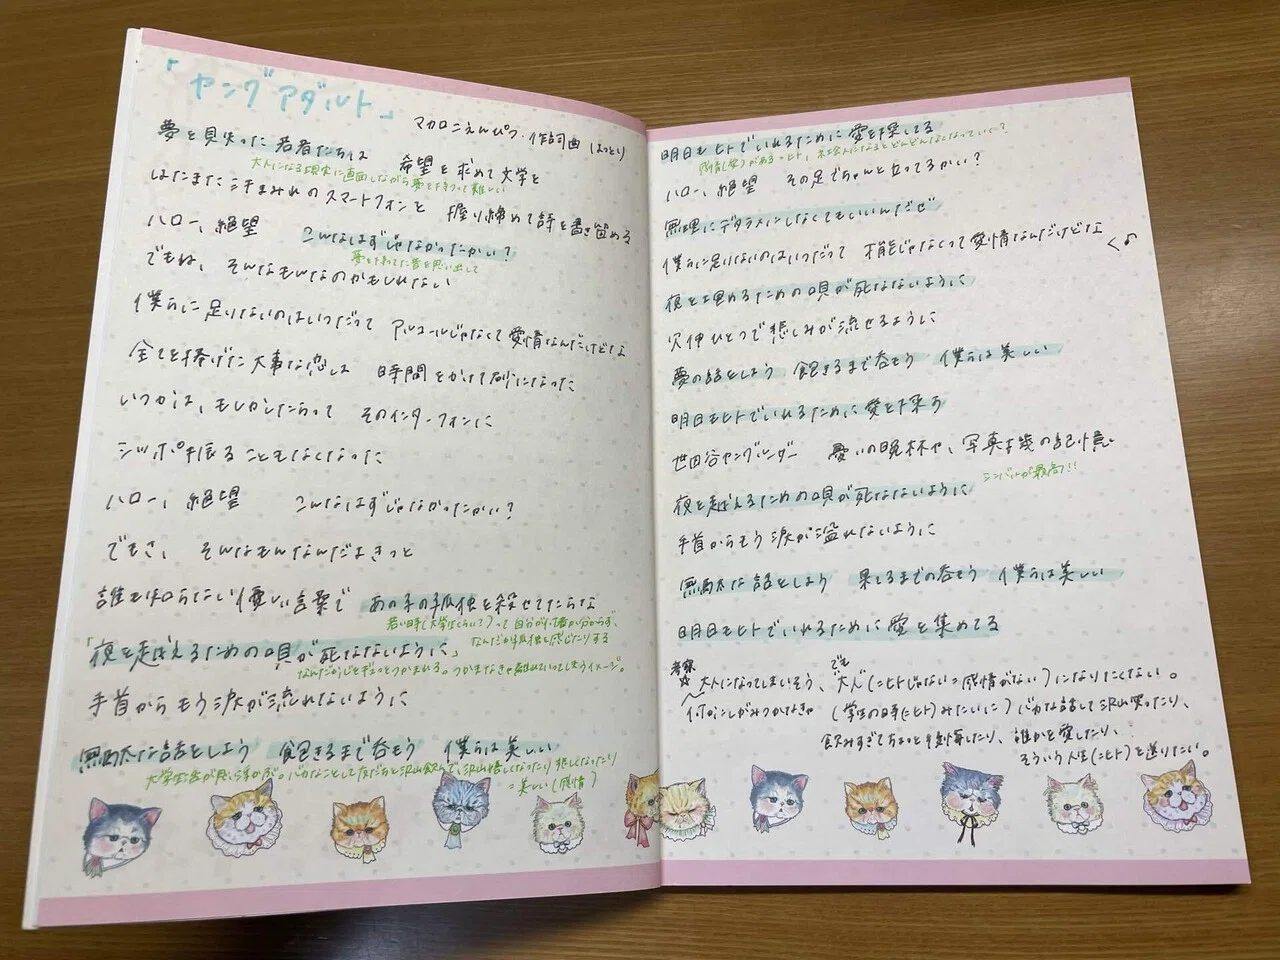 「ヤングアダルト」
マカロニえんぴつ・作詞曲 はっとり
夢を見失った若者たちは 希望を求めて文学を
大人になる現実に直面しながら夢を持つって難しい
はたまた汗まみれのスマートフォンを 握り締めて詩を書き留める
ハロー、絶望 こんなはずじゃなかったかい?
夢を持ってた昔を思い出して
でもね、そんなもんなのかもしれない
僕らに足りないのはいつだって アルコールじゃなくて愛情なんだけどな
全てを捧げた大事な恋は 時間をかけて砂になった
いつかは、もしかしたらって そのインターフォンに
シッポ振ることもなくなった
ハロー、絶望 こんなはずじゃなかったかい?
でもさ、そんなもんなんだよきっと
誰も知らない優しい言葉で あの子の孤独を殺せてたらな
若い時(大学生くらい?)って自分が何者か分からず、
なんだか孤独を感じたりする
「夜を越えるための唄が死なないように」
なんだか心をギュッとつかまれる。つかまなきゃ離れていってしまうイメージ。
手首からもう涙が流れないように
無駄な話をしよう 飽きるまで呑もう 僕らは美しい
大学生舎が思い浮かぶ。バカなことして友だちと沢山飲んで、沢山嬉しくなったり悲しくなったり
=美しい(感情)
明日もヒトでいれるために愛を探してる
感情(愛)がある=ヒト、社会人になるとどんどんなくなっていく?
ハロー、絶望 その足でちゃんと立ってるかい?
無理にデタラメにしなくてもいいんだぜ
僕らに足りないのはいつだって 才能じゃなくって愛情なんだけどな
夜を埋めるための唄が死なないように
穴伸ひとつで悲しみが流せるように
夢の話をしよう 飽きるまで呑もう 僕らは美しい
明日もヒトでいれるために愛を探す
世田谷ヤングルーザー 憂いの晩杯や、写真は幾の記憶
シンバルが最高!!
夜を越えるための唄が死なないように
手首からもう涙が溢れないように
無駄な話をしよう 果てるまでの呑もう 僕らは美しい
明日もヒトでいれるために愛を集めてる
考察
☆大人になってしまいそう、でも大人(=ヒトじゃない=感情がない)になりたくない。
何かしがみつかなきゃ (学生の時(ヒト)みたいに)バカな話して沢山笑ったり、
飲みすぎてちょっと後悔したり、誰かを愛したり、
そういう人生(=ヒト)を送りたい。